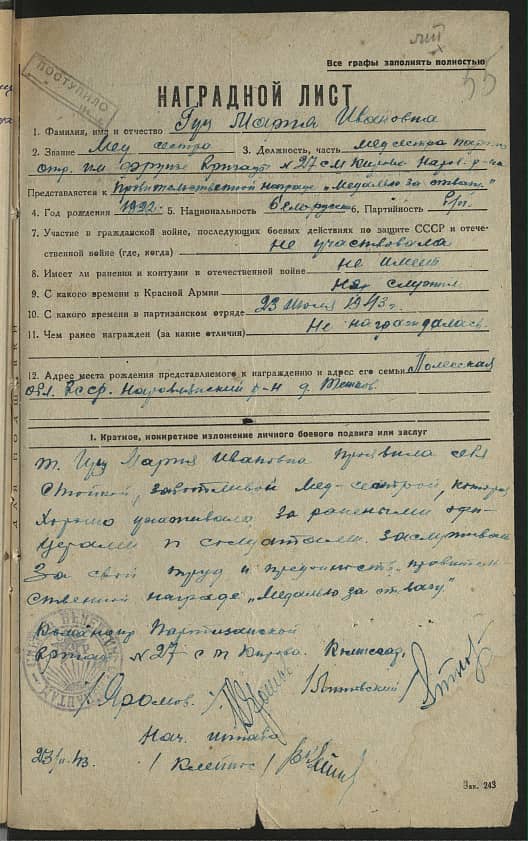 Все графы заполнять полностью
55
ПОСТУПИЛО
НАГРАДНОЙ ЛИСТ
1. Фамилия, имя и отчество Гуц Мария Ивановна
2. Звание Мед сестра 3. Должность, часть медсестра
отр. им Фрунзе бригады №27 с м Кирова Наров. р-на
Представляется к правительственной награде „Медалью за отвагу"
4. Год рождения 1922 5. Национальность белоруска 6. Партийность б/п
7. Участие в гражданской войне, последующих боевых действиях по защите СССР и отече-
ственной войне (где, когда) не участвовала
8. Имеет ли ранения и контузии в отечественной войне не имеет
9. С какого времени в Красной Армии не служил
10. С какого времени в партизанском отряде 23 июля 1943 г.
11. Чем ранее награжден (за какие отличия) Не награждалась
12. Адрес места рождения представляемого к награждению и адрес его семьи Полесская
обл. БССР. Наровлянский р-н д.
1. Краткое, конкретное изложение личного боевого подвига или заслуг
т. Гуц Мария Ивановна проявила себя
стойкой, заботливой мед-сестрой, которая
хорошо ухаживала за ранеными офи-
церами и солдатами. Заслуживает
За свой труд и преданность правитель-
ственной награде „Медалью за отвагу"
Командир Партизанской
бригады №27 с м Кирова. Комиссар.
/Яромов. /
Нач. штаба
23/II.43
Зак. 243
ДЛЯ ПОДШИВКИ